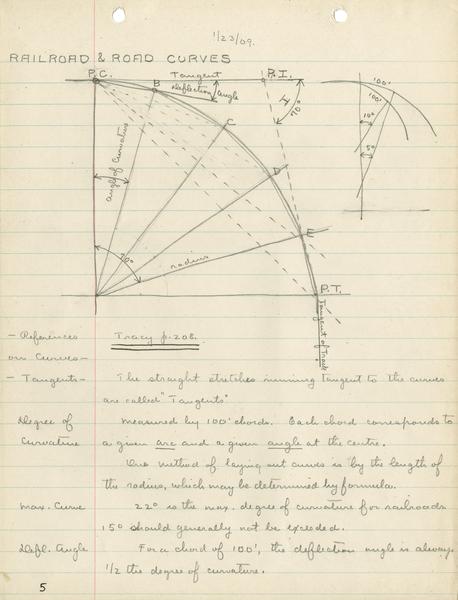 1/23/09.
RAILROAD & ROAD CURVES
P.C. Tangent P.I.
B Deflection Angle
I 70°
C
100'
100'
10°
5°
angle of Curvature
D
70°
radius
E
P.T.
Tangent of Track
– References Tracy p. 208.
on Curves –
– Tangents – The straight stretches running tangent to the curves
are called "Tangents"
Degree of measured by 100' chords. Each chord corresponds to
Curvature a given arc and a given angle at the centre.
One method of laying out curves is by the length of
the radius, which may be determined by formula.
Max. Curve 22° is the max. degree of curvature for railroads
15° should generally not be exceeded.
Defl. Angle For a chord of 100', the deflection angle is always
1/2 the degree of curvature.
5